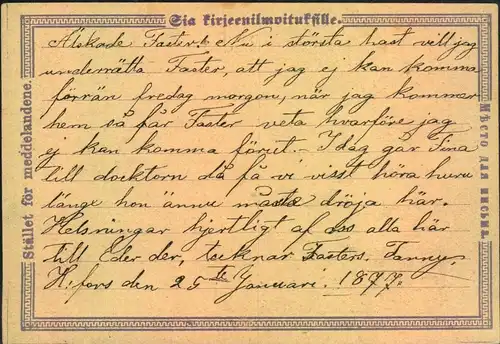 Sia kirjeenilmoituksille.
Älskade Faster! Nu i största hast vill jag
underrätta Faster, att jag ej kan komma
förrän fredag morgon, när jag kommer
hem så får Faster veta hvarföre jag
ej kan komma förut. I dag går Fina
till docktorn då få vi visst höra huru
länge hon ännu måste dröja här.
Helsningar hjertligt af oss alla här
till Eder der, tecknar Fasters. Fanny.
H:fors den 25te Januari. 1877.
Stället för meddelandene.
Мѣсто для письма.